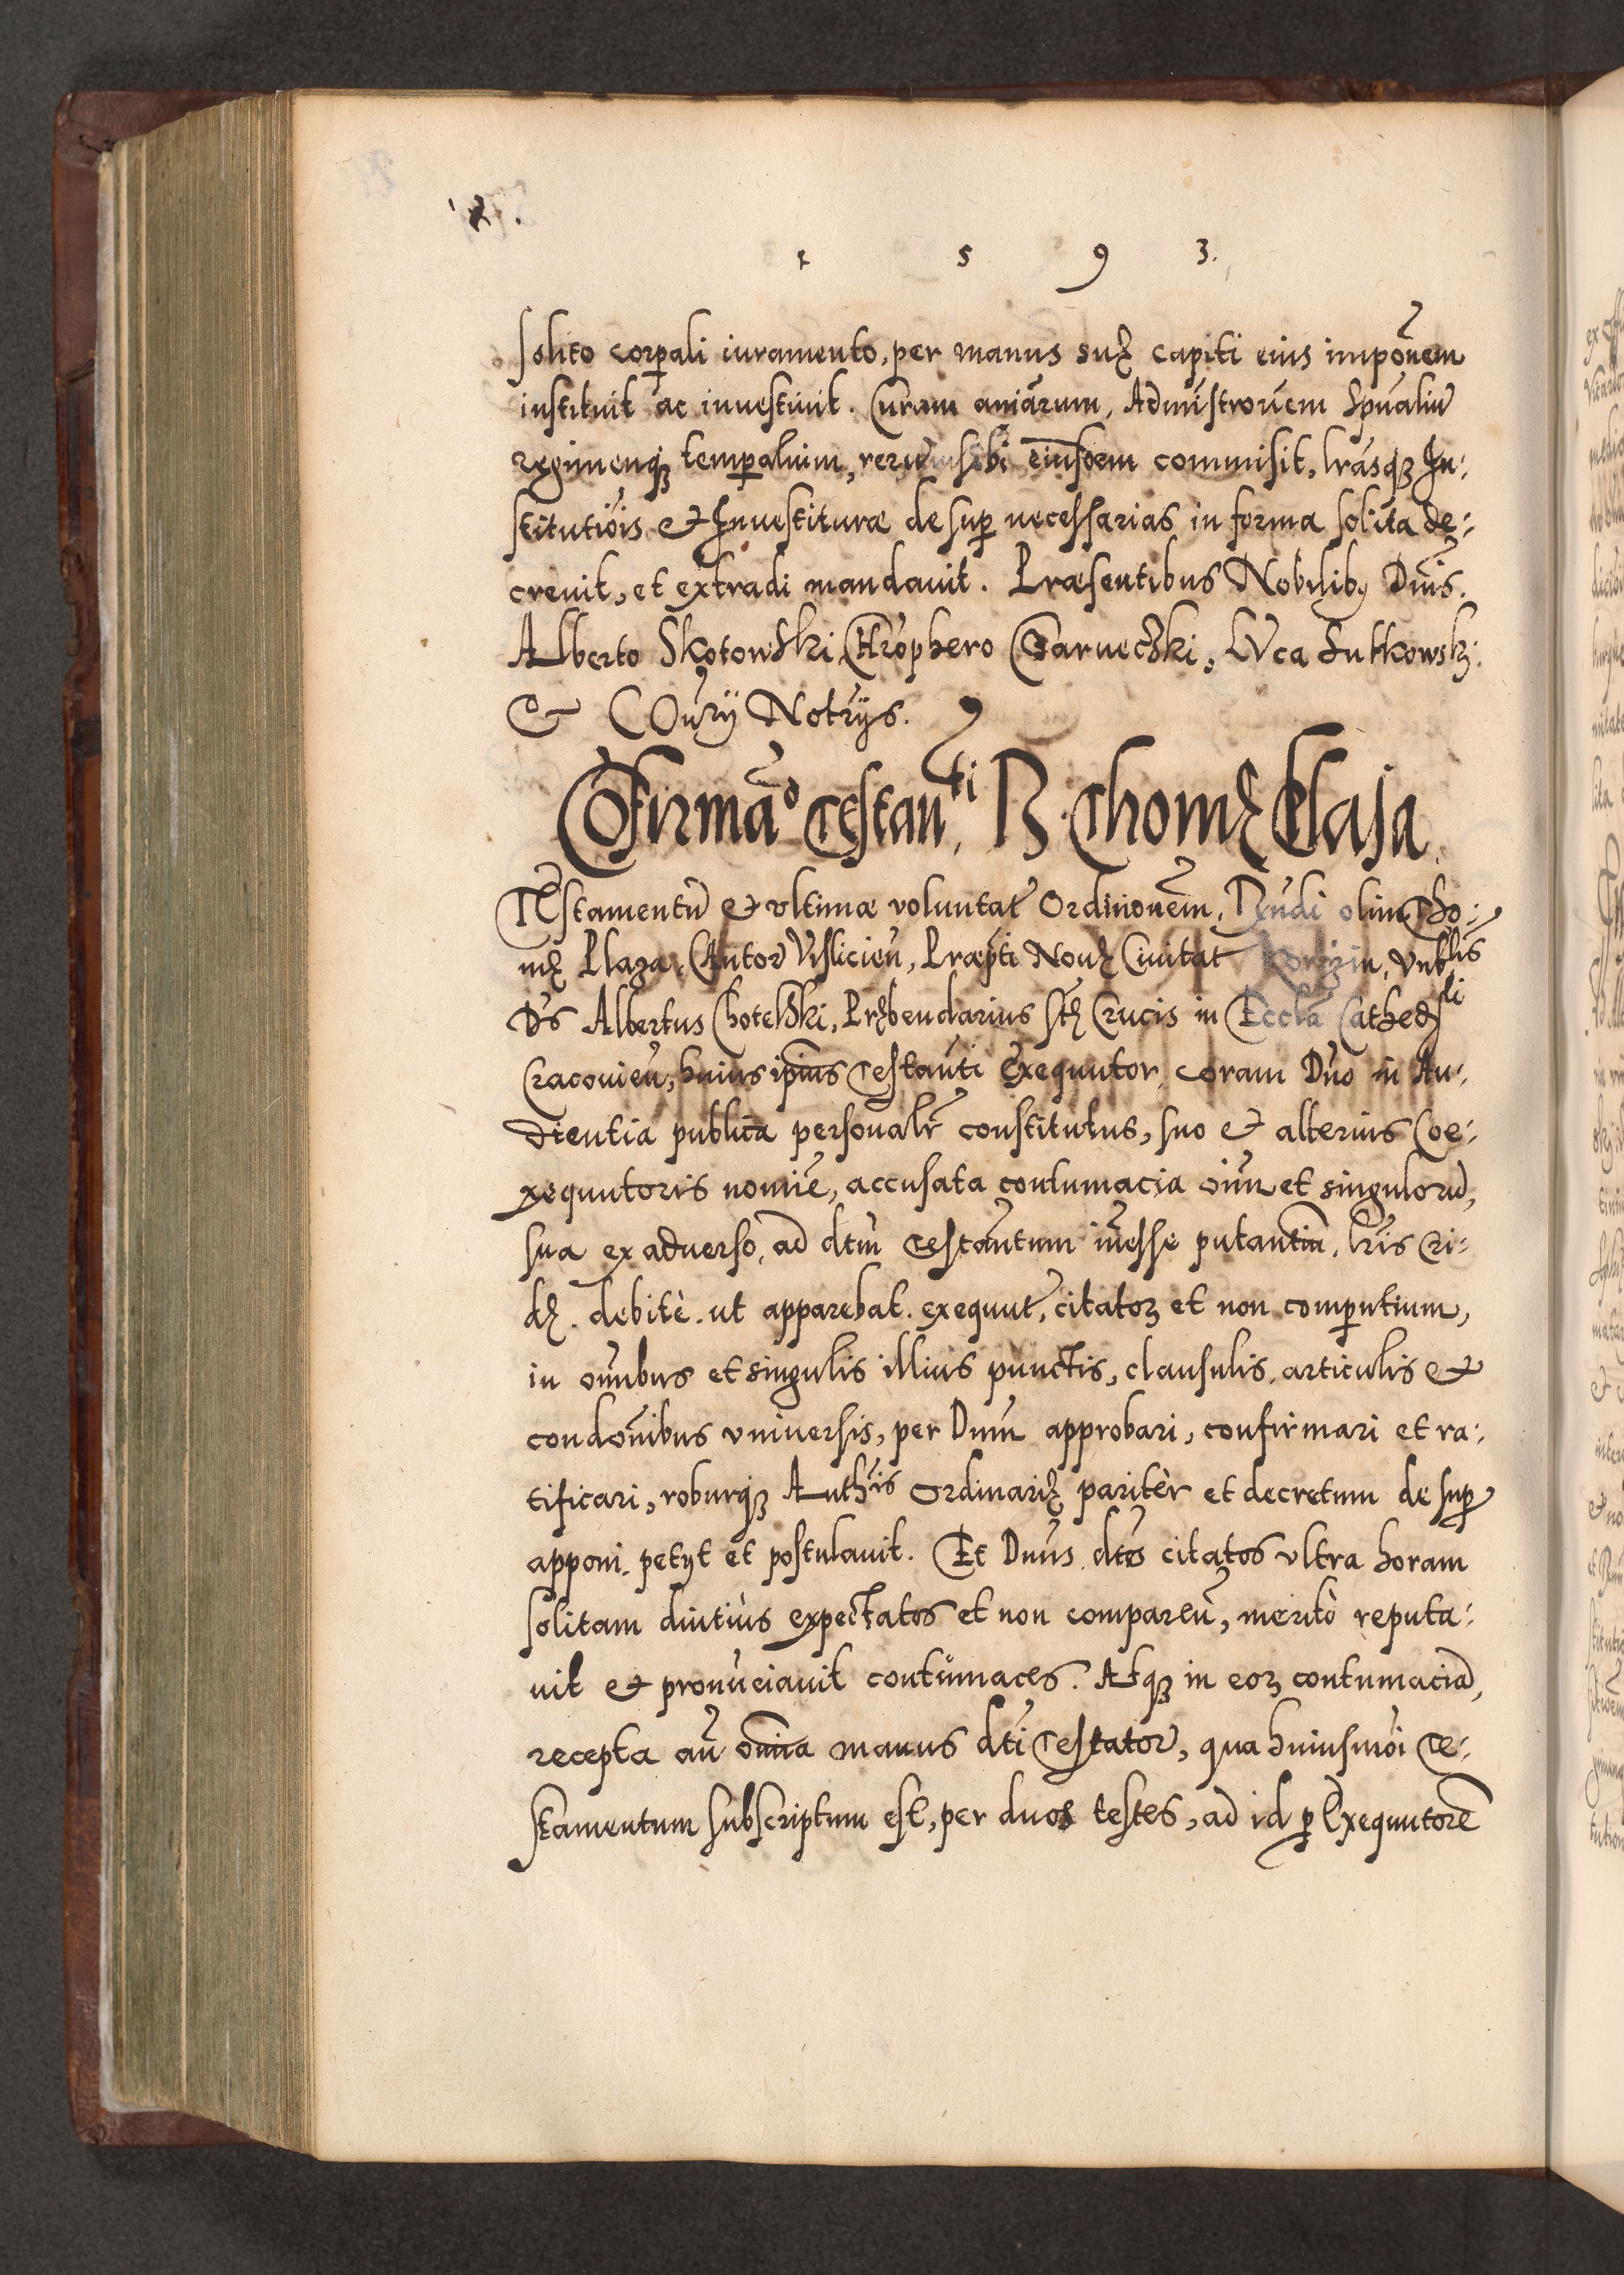 1 5 9 3.
solito corpali iuramento, per manus suę capiti eius impõnem
instituit ac inuestiuit. Curam aniãrum, Administroñem Spũalium
regimenqꝫ tempalium, rerum ibi eiusdem commisit, lrãsqꝫ In-
stitutiõis et Inuestituræ desup necessarias in forma solita de-
creuit, et extradi mandauit. Præsentibus Nobilibꝰ Dñis.
Alberto Skotowski, Chrõphero Czarneczki, Luca Lutkowski
et Notrijs.
Cõfirmão Testanti R. Thomę Plasa.
TEstamentũ et vltimæ voluntat Ordinõnem, Rñdi olim Tho-
mę Plaza, Cantor Visliciẽn, Præpti Nouę Ciuitat Korczin, Vnblis
Dñs Albertus Chotelski, Prębendarius Stę Crucis in Eccla Cathedrli
Cracouieñ, huius ipius Testanti Exequutor, coram Dño in Au-
dientia publica personalr constitutus, suo et alterius Coe-
xequutoris nomie, accusata contumacia oiũm et singulorũ,
sua ex aduerso, ad dtũm Testantum inesse putantium, lris Ci-
dę. debitè. ut apparebat. exequut, citatoꝝ et non compentium,
in omnibus et singulis illius punctis, clausulis, articulis et
condõnibus vniuersis, per Dnum approbari, confirmari et ra-
tificari, roburqꝫ Authris Ordinarię paritèr et decretum desup
apponi petijt et postulauit. Et Dnus dtos citatos vltra horam
solitam diutiùs expectatos et non comparen, meritò reputa-
uit et pronũciauit contumaces. Atqꝫ in eoꝝ contumaciã,
recepta añ omnia manus dti Testator, qua huiusmõi Te-
stamentum subscriptum est, per duos testes, ad id p Exequutorẽ